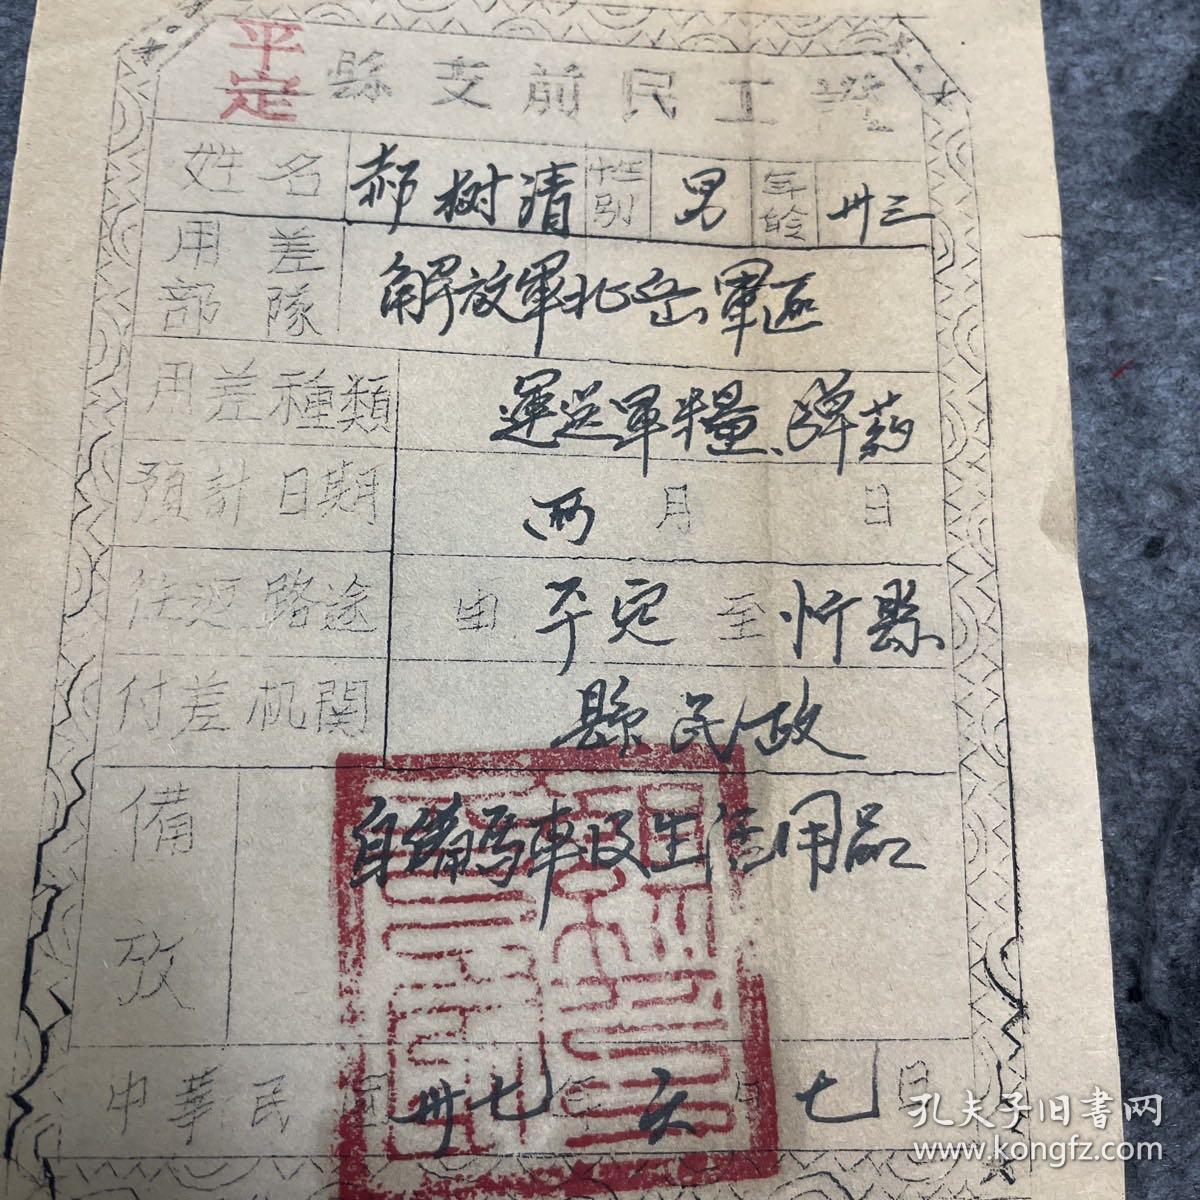 平定縣支前民工
姓名 郝樹清 性别 男 年龄 卅三
用差部隊 解放軍北岳軍區
用差種類 運送軍糧、弹葯
預計日期 两月 日
往返路途 由平定至忻縣
付差机関 縣民政
備攷 自備馬車及生活用品
中華民国卅七年六月七日
孔夫子旧書网
www.kongfz.com